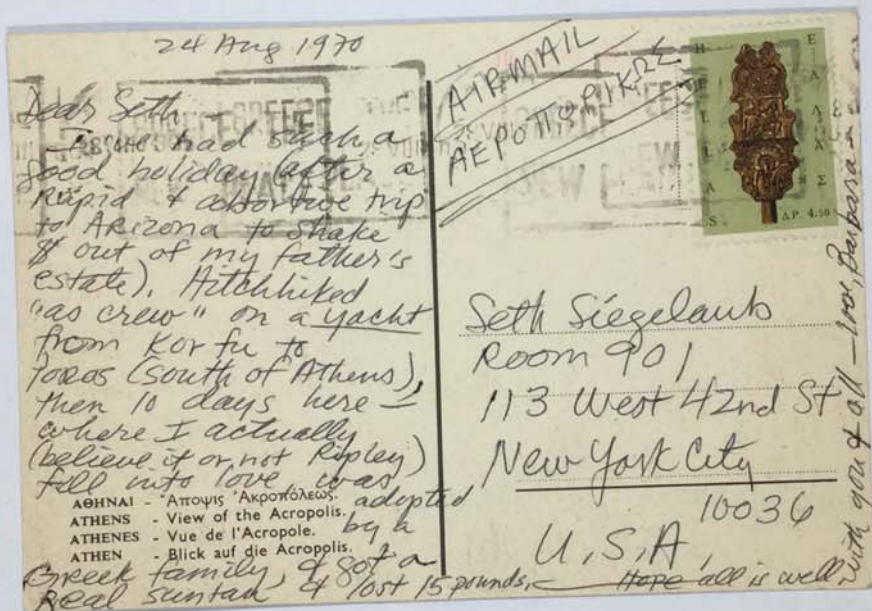 24 Aug 1970
Dear Seth -
I've had such a
good holiday (after a
Rapid & abortive trip
to Arizona to shake
$ out of my father's
estate). Hitchhiked
"as crew" on a yacht
from Korfu to
Poros (South of Athens),
then 10 days here -
where I actually
(believe it or not Ripley)
fell into love, was
adopted
by a
Greek family, & got a
Real suntan & lost 15 pounds. Hope all is well
with you & all - love, Barbara
ΑΘΗΝΑΙ - Ἄποψις Ἀκροπόλεως.
ATHENS - View of the Acropolis.
ATHENES - Vue de l'Acropole.
ATHEN - Blick auf die Acropolis.
AIRMAIL
ΑΕΡΟΠΟΡΙΚΩΣ
ΕΛΛΑΣ
HELLAS
ΔΡ. 4.50
GREECE
NEW
Seth Siegelaub
Room 901
113 West 42nd St
New York City
10036
U.S.A.